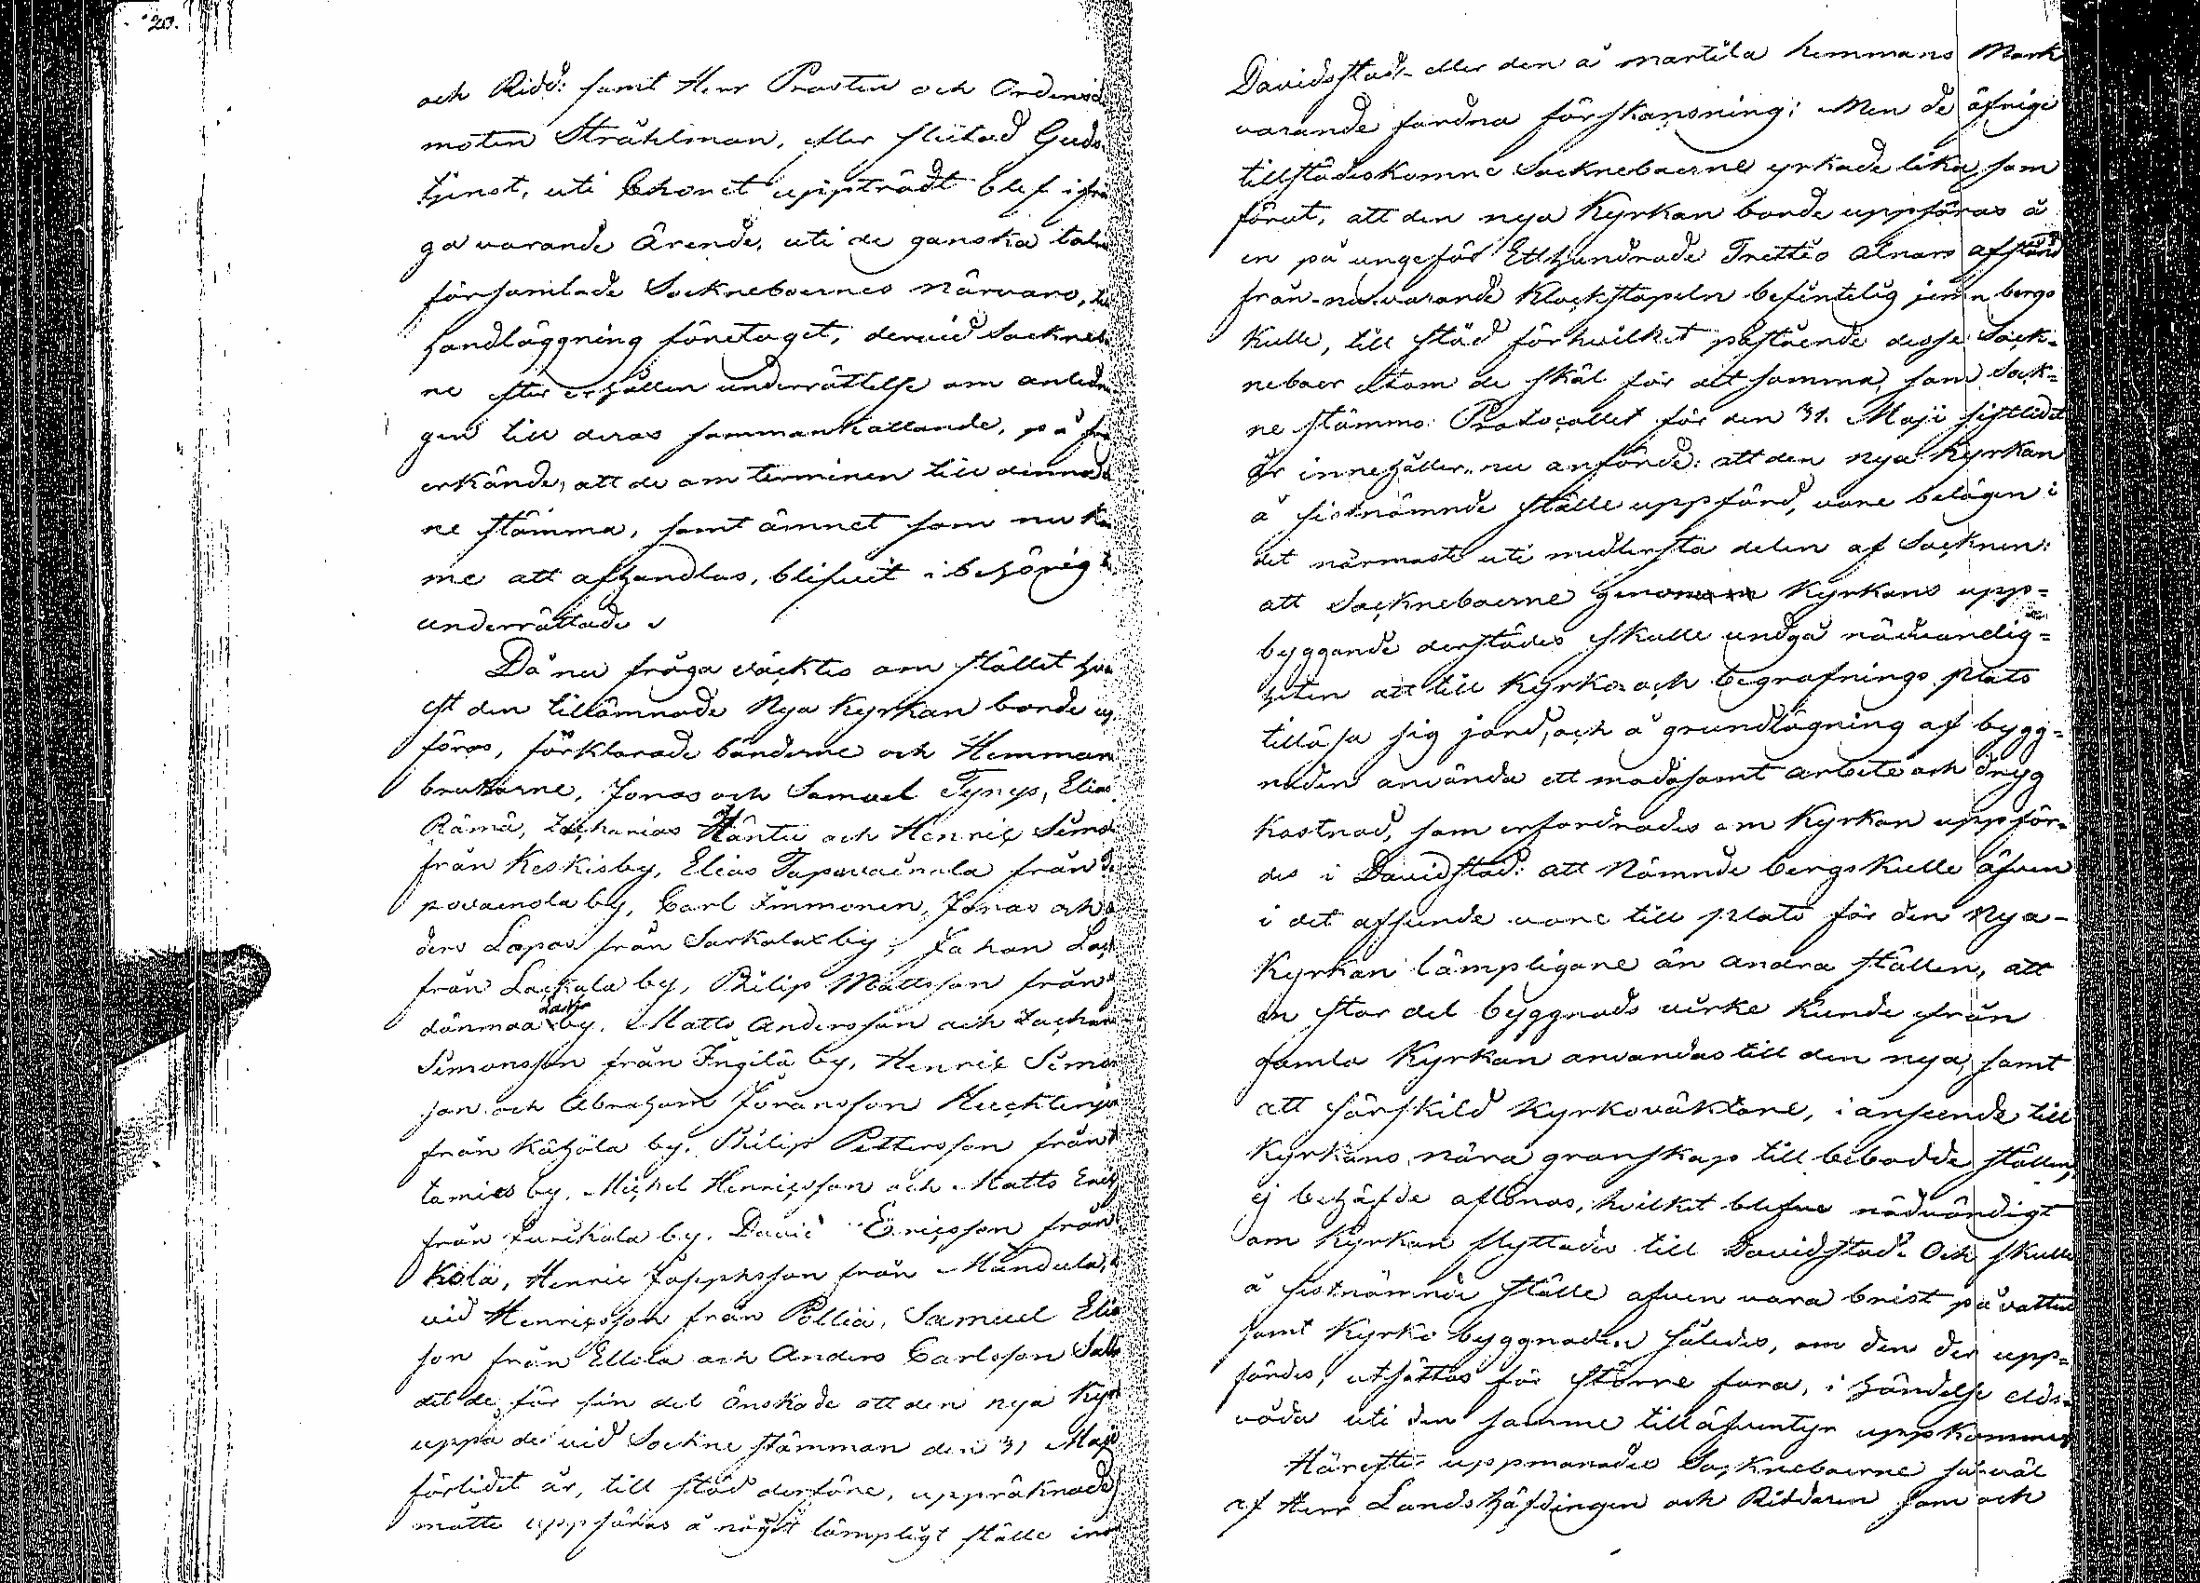 20.
och Ridd: samt Herr Prosten och Ordens
moten Stråhlman, efter slutad Guds
tjenst, uti Choret uppträdt blef i frå
ga varande Ärende, uti de ganska talr
församlade Sockneboernes närvaro,
handläggning företaget, dervid Sockneb
ne efter erhållen underrättelse om anledn
gen till deras sammankallande, på frå
erkände, att de om terminen till denna
ne stämma, samt ämnet som nu ko
me att afhandlas, blifvit i behörig
underrättade
Då nu fråga väcktes om stället hva
est den tillämnade Nya Kyrkan borde up
föras, förklarade bönderne och Hemman
brukarne, Jonas och Samuel Tynys, Elias
Rämä, Zacharias Häntu och Henric Simo
från Keskisby, Elias Tapavainola från
pavainola by, Carl Immonen, Jonas och
ders Lapas från Sarkalax by, Johan Lack
från Lackala by, Philip Mattsson från
dänmaa by, Matts Andersson och Zachar
Simonsson från Ingilä by, Henric Simo
son och Abraham Jöransson
från Kähölä by, Philip Pettersson från
tamies by, Michel Henricsson och Matts Eric
från by, David Ericsson från
Kölä, Henric Josephsson från Mandula,
vid Henricsson från Pölliä, Samuel Elia
son från Ellilä och Anders Carlsson
det de för sin del önskade att den nya Kyr
uppå de vid Sockne stämman den 31 Maji
förlidet år, till stöd derföre, uppräknade
måtte uppföras å något lämpligt ställe in
Davidsstad eller den å Martila hemmans Mark
varande fordna förskansning; Men de öfrige
tillstädeskomne Sockneboerne yrkade lika som
förut, att den nya Kyrkan borde uppföras å
en på ungefär Etthundrade Trettio alnars afstånd
från nu varande Klockstapeln befintelig jemn bergs
kulle, till stöd för hvilket påstående desse Sock-
neboer utom de skäl för det samma, som Sock-
ne stämmo Protocollet för den 31. Maji sistledit
år innehåller, nu anförde: att den nya Kyrkan
å sistnämnde ställe uppförd, vore belägen i
det närmaste uti medlersta delen af Socknen:
att Sockneboerne genom Kyrkans upp-
byggande derstädes skulle undgå nödvändig-
heten att till Kyrko och begrafnings plats
tillösa sig jord, och å grundlägning af bygg-
naden använda ett mödosamt arbete och dryg
kostnad, som erfordrades om Kyrkan uppför-
des i Davidstad: att Nämnde bergskulle äfven
i det afseende vore till plats för den Nya
Kyrkan lämpligare än andra ställen, att
en stor del byggnads virke kunde från
gamla Kyrkan användas till den nya, samt
att särskild Kyrkoväktare, i anseende till
Kyrkans nära granskap till bebodde ställen,
ej behöfde aflönas, hvilket blefve nödvändigt
om Kyrkan flyttades till Davidstad: Och skulle
å sistnämnde ställe äfven vara brist på vatten
samt Kyrko byggnaden således, om den der upp-
fördes, utsättas för större fara, i händelse elds-
våda uti den samme till äfventyr uppkommer
Härefter uppmanades Sockneboerne så väl
af Herr Landshöfdingen och Riddaren som och